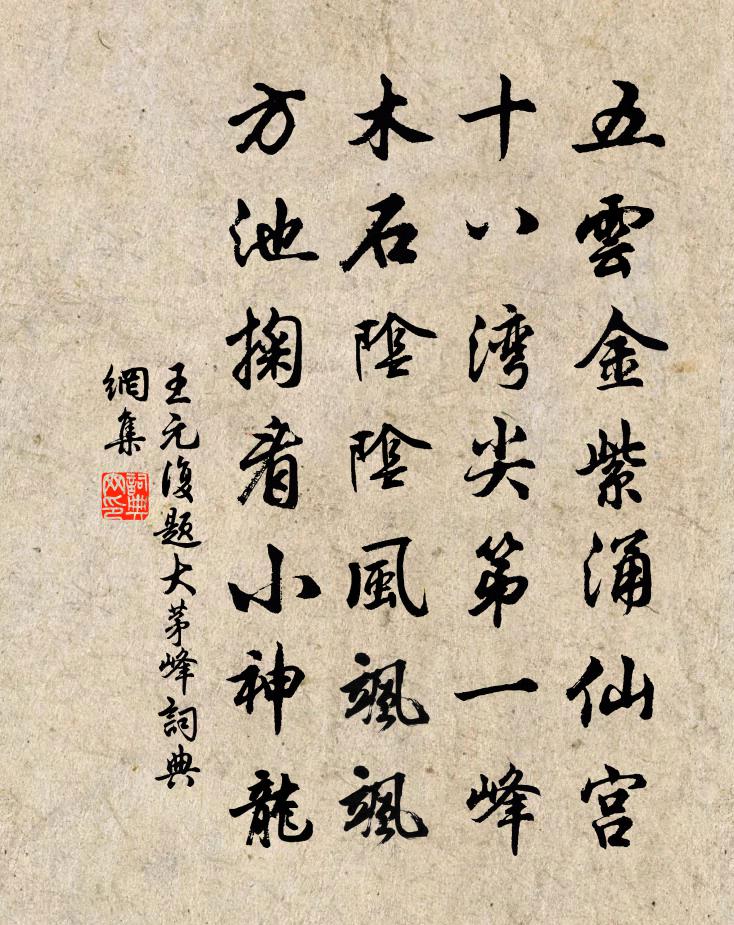 五雲金紫涌仙宫
十八湾尖第一峰
木石陰陰風颯颯
方池掬看小神龍
王元復题大茅峰詞典
網集
詞典
網印